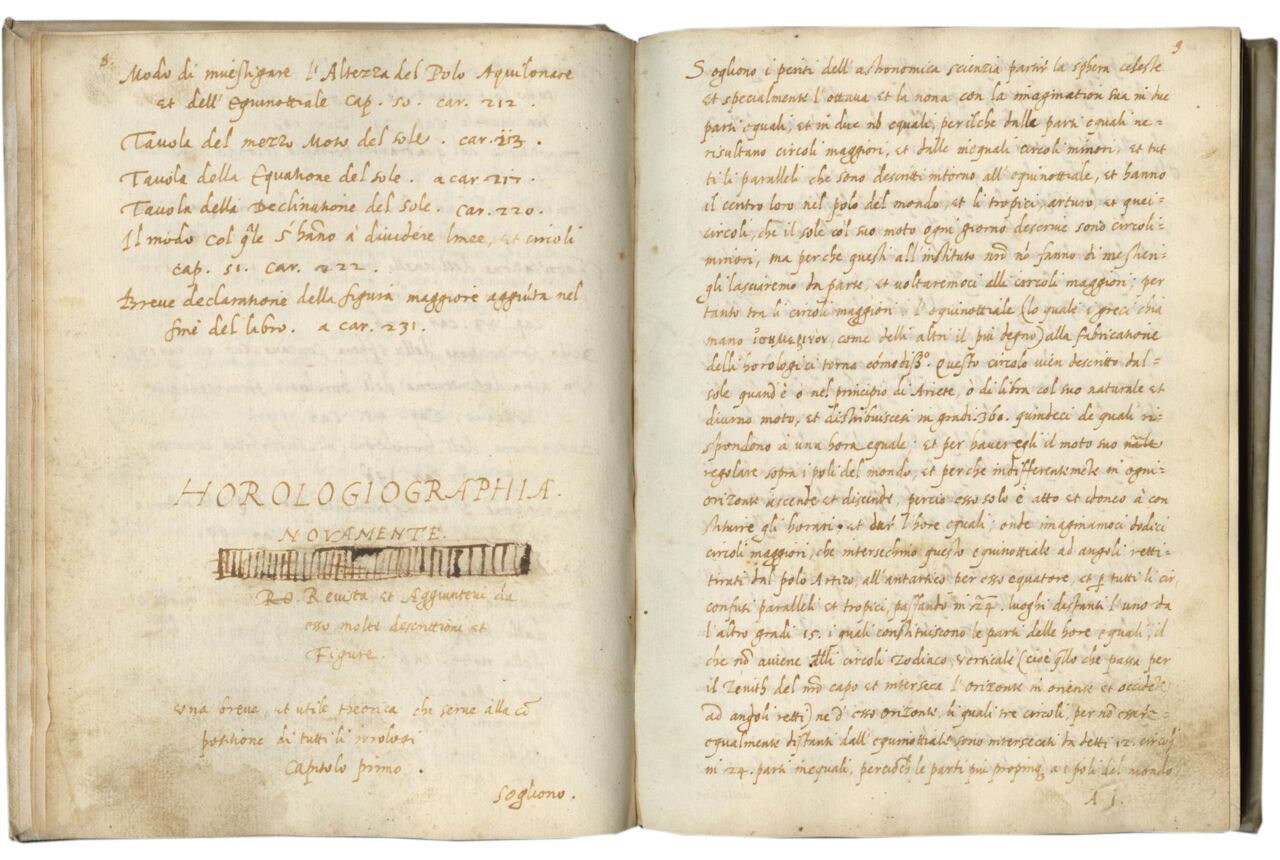 8.
Modo di inuestigare l'Altezza del Polo Aquilonare
et dell'Equinottiale Cap. 50. car. 212.
Tauola del mezzo Moto del sole. car. 213.
Tauola della Equatione del sole. a car 217.
Tauola della Declinatione del Sole. car. 220.
Il modo col q̃le s'hãno à diuidere linee, et circoli
cap. 51. car. 222.
Breue declaratione della figura maggiore aggiũta nel
fine del libro. a car. 231.
HOROLOGIOGRAPHIA.
NOVAMENTE.
Reuista et Aggiunteui da
esso molte descrittioni et
Figure.
Vna breue, et utile theorica che serue alla cõ
positione di tutti li horologi
Capitolo primo.
Sogliono.
9
Sogliono i periti dell'astronomica scienzia partir la sphera celeste
et specialmente l'ottaua et la nona con la imagination sua in due
parti equali, et in due nõ equali, per ilche dalle parti equali ne=
risultano circoli maggiori, et dalle inequali circoli minori, et tut
ti li paralleli che sono descritti intorno all'equinottiale, et hanno
il centro loro nel polo del mondo, et li tropici, arturo, et quei=
circoli, che il sole col suo moto ogni giorno descriue sono circoli=
minori, ma perche questi all'instituto nrõ nõ fanno di mestieri=
gli lasciaremo da parte, et voltaremoci alli circoli maggiori; per
tanto tra li circoli maggiori l'equinottiale (lo quale i greci chia
mano come delli altri il piu degno) alla fabricatione
delli horologi ci torna cómodiss.º questo circolo uien descritto dal=
sole quand'è o nel principio di Ariete, ò di libra col suo naturale et
diurno moto, et distribuiscesi in gradi. 360. quindeci de quali ri=
spondono à una hora equale; et per hauer egli il moto suo nãle
regolare sopra i poli del mondo, et perche indifferentemẽte in ogni=
orizonte ascende et discende, percio esso solo è atto et idoneo à con
stituire gli horari, et dar l'hore equali; onde imaginamoci dodici
circoli maggiori, che intersechino questo equinottiale ad angoli retti=
tirati dal polo Artico, all'antartico per esso equatore, et p tutti li cir,
confusi paralleli et tropici, passando in 24. luoghi distanti l'uno da
l'altro gradi 15. i quali constituiscono le parti delle hore equali; il
che nõ auiene alli circoli Zodiaco, Verticale (cioe q̃llo che passa per
il Zenith del nrõ capo et interseca l'orizonte in oriente et occidẽte
ad angoli retti) ne d'esso orizonte, li quali tre circoli, per nõ essere=
egualmente distanti dall'equinottiale sono intersecati da detti 12. circoli
in 24. parti inequali, percioche le parti piu propinq̃ a i poli del mondo
A 1.